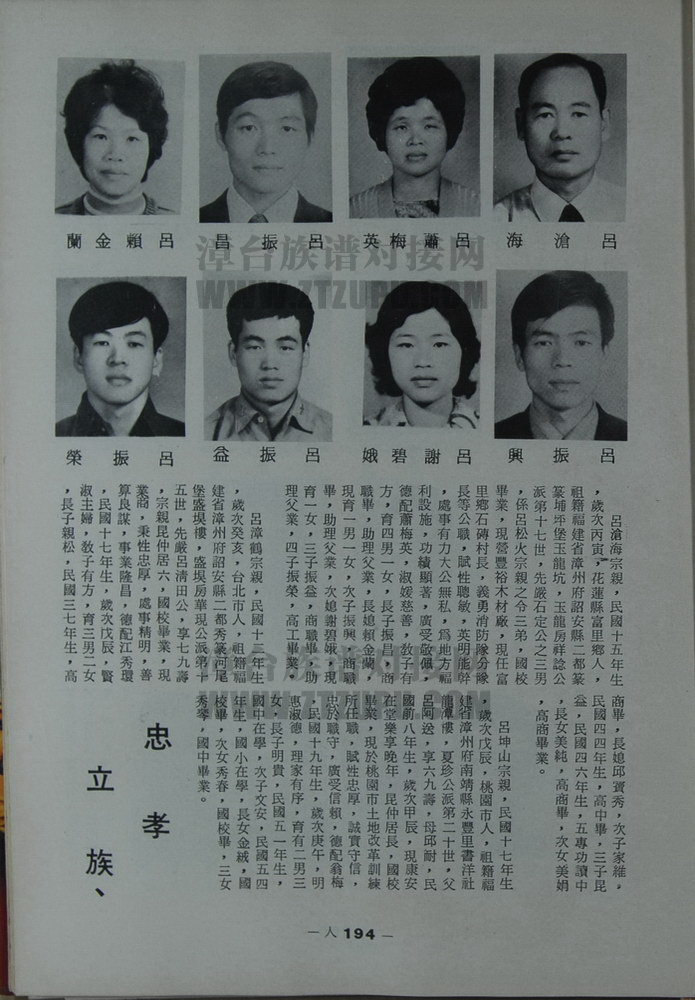 蘭金賴呂
昌振呂
英梅蕭呂
海滄呂
榮振呂
益振呂
娥碧謝呂
興振呂
漳台族谱对接网
WWW.ZTZUPU.COM
呂滄海宗親，民國十五年生
，歲次丙寅，花蓮縣富里鄉人，
祖籍福建省漳州府詔安縣二都篆
篆埔坪堡玉龍坑，玉龍房祥諗公
派第十七世，先嚴石定公之三男
，係呂松火宗親之令三弟，國校
畢業，現營豐裕木材廠，現任富
里鄉石磚村長，義勇消防隊分隊
長等公職，賦性聰敏，英明能幹
，處事有力大公無私，爲地方福
利設施，功績顯著，廣受敬佩，
德配蕭梅英，淑媛慈善，敎子有
方，育四男一女，長子振昌，商
職畢，助理父業，長媳賴金蘭，
現育一男一女，次子振興，商職
畢，助理父業，次媳謝碧娥，現
育一女，三子振益，商職畢，助
理父業，四子振榮，高工畢業。
呂漳鶴宗親，民國十二年生
，歲次癸亥，台北市人，祖籍福
建省漳州府詔安縣二都秀篆河尾
堡盛埧樓，盛埧房華現公派第十
五世，先嚴呂清田公，享七九壽
，宗親昆仲居六，國校畢業，現
業商，秉性忠厚，處事精明，善
算良謀，事業隆昌，德配江秀環
，民國十七年生，歲次戊辰，賢
淑主婦，敎子有方，育三男二女
，長子親松，民國三七年生，高
商畢，長媳邱寶秀，次子家維，
民國四四年生，高中畢，三子昆
益，民國四六年生，五專功讀中
，長女美純，高商畢，次女美娟
，高商畢業。
呂坤山宗親，民國十七年生
，歲次戊辰，桃園市人，祖籍福
建省漳州府南靖縣永豐里書洋社
龍潭樓，夏珍公派第二十世，父
呂阿送，享六九壽，母邱耐，民
國前八年生，歲次甲辰，現康安
在堂樂享晚年，昆仲居長，國校
畢業，現於桃園市土地改革訓練
所任職，賦性忠厚，誠實守信，
忠於職守，廣受信賴，德配翁梅
，民國十九年生，歲次庚午，明
惠淑德，理家有序，育有二男三
女，長子明貴，民國五一年生，
國中在學，次子文安，民國五四
年生，國小在學，長女金絨，國
校畢，次女秀春，國校畢，三女
秀琴，國中畢業。
忠孝
立族、
— 人 194 —